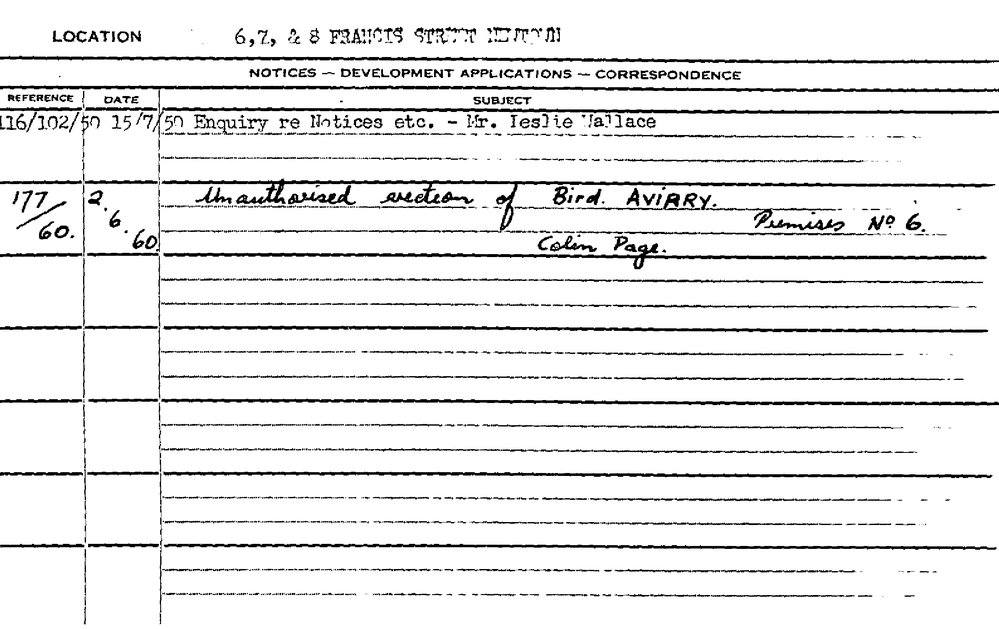 LOCATION 6,7, & 8 FRANCIS STREET NEWTOWN
NOTICES — DEVELOPMENT APPLICATIONS — CORRESPONDENCE
REFERENCE DATE SUBJECT
116/102/50 15/7/50 Enquiry re Notices etc. - Mr. Leslie Wallace
177/60. 2.6.60. Unauthorised erection of Bird. AVIARY.
Premises No 6.
Colin Page.